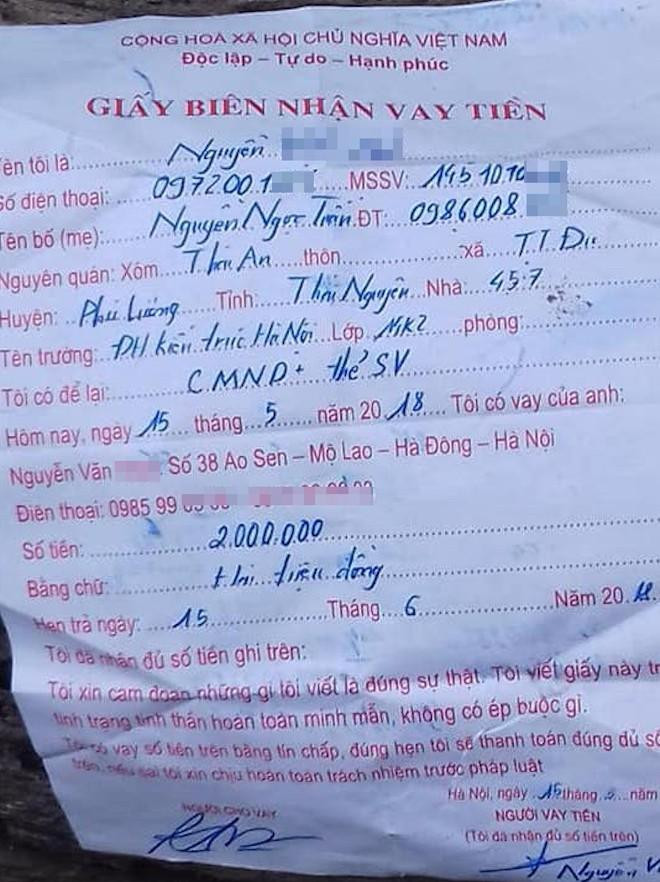 CỘNG HOÀ XÃ HỘI CHỦ NGHĨA VIỆT NAM
Độc lập – Tự do – Hạnh phúc
GIẤY BIÊN NHẬN VAY TIỀN
Tên tôi là: Nguyễn
Số điện thoại: 097200.1 MSSV: 1451010
Tên bố (mẹ): Nguyễn Ngọc ĐT: 0986008
Nguyên quán: Xóm Thôn xã T.T Đu
Huyện: Phú Lương Tỉnh: Thái Nguyên Nhà: 457
Tên trường: ĐH kiến trúc Hà Nội Lớp phòng:
Tôi có để lại: CMND + thẻ SV
Hôm nay, ngày 15 tháng 5 năm 2018 Tôi có vay của anh:
Nguyễn Văn Số 38 Ao Sen – Mộ Lao – Hà Đông – Hà Nội
Điện thoại: 0985 99
Số tiền: 2.000.000
Bằng chữ: Hai triệu đồng
Hẹn trả ngày: 15 Tháng 6 Năm 2018
Tôi đã nhận đủ số tiền ghi trên:
Tôi xin cam đoan những gì tôi viết là đúng sự thật. Tôi viết giấy này
tình trạng tinh thần hoàn toàn minh mẫn, không có ép buộc gì.
Tôi có vay số tiền trên bằng tín chấp, đúng hẹn tôi sẽ thanh toán đúng đủ số
trên, nếu sai tôi xin chịu hoàn toàn trách nhiệm trước pháp luật
Hà Nội, ngày 15 tháng 5 năm
NGƯỜI CHO VAY NGƯỜI VAY TIỀN
(Tôi đã nhận đủ số tiền trên)
Nguyễn V